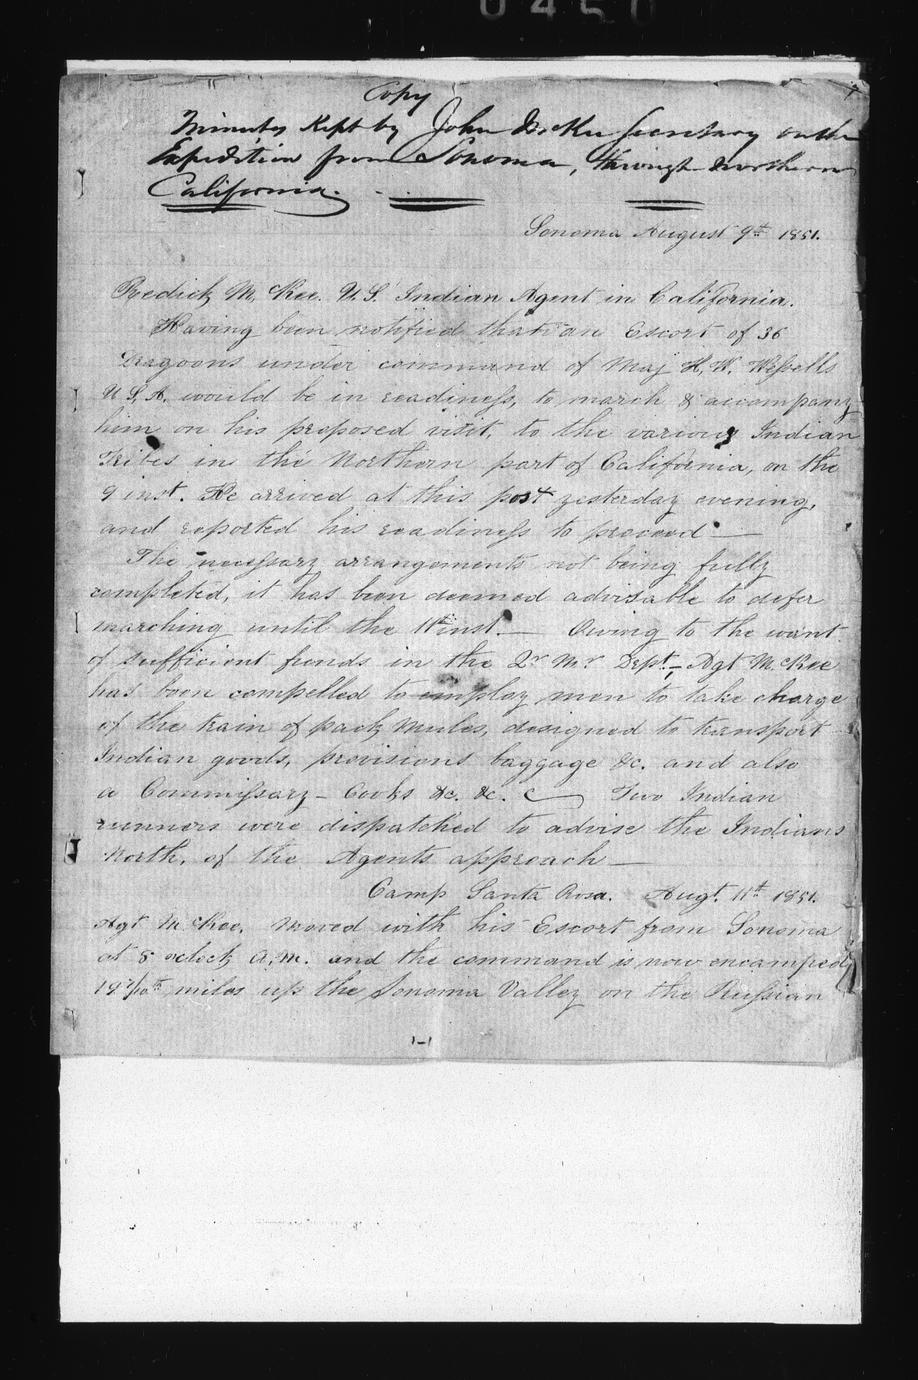 0450
Copy
Minutes Kept by John McKee Secretary on the
Expedition from Sonoma, through Northern
California.
Sonoma August 9th 1851.
Redick McKee. U.S. Indian Agent in California.
Having been notified that an Escort of 36
Dragoons under command of Maj H. W. Wessells
U.S.A. would be in readiness, to march & accompany
him on his proposed visit, to the various Indian
Tribes in the Northern part of California, on the
9 inst. He arrived at this post yesterday evening,
and reported his readiness to proceed —
The necessary arrangements not being fully
completed, it has been deemed advisable to defer
marching until the 11th inst. — Owing to the want
of sufficient funds in the Qr Mr Dept. — Agt McKee
has been compelled to employ men to take charge
of the train of pack mules, designed to transport
Indian goods, provisions baggage &c. and also
a Commissary – Cooks &c. &c. Two Indian
runners were dispatched to advise the Indians
North, of the Agents approach —
Camp Santa Rosa. Augt. 11th 1851.
Agt McKee, moved with his Escort from Sonoma
at 8 oclock A.M. and the command is now encamped
miles up the Sonoma Valley on the Russian
-1-